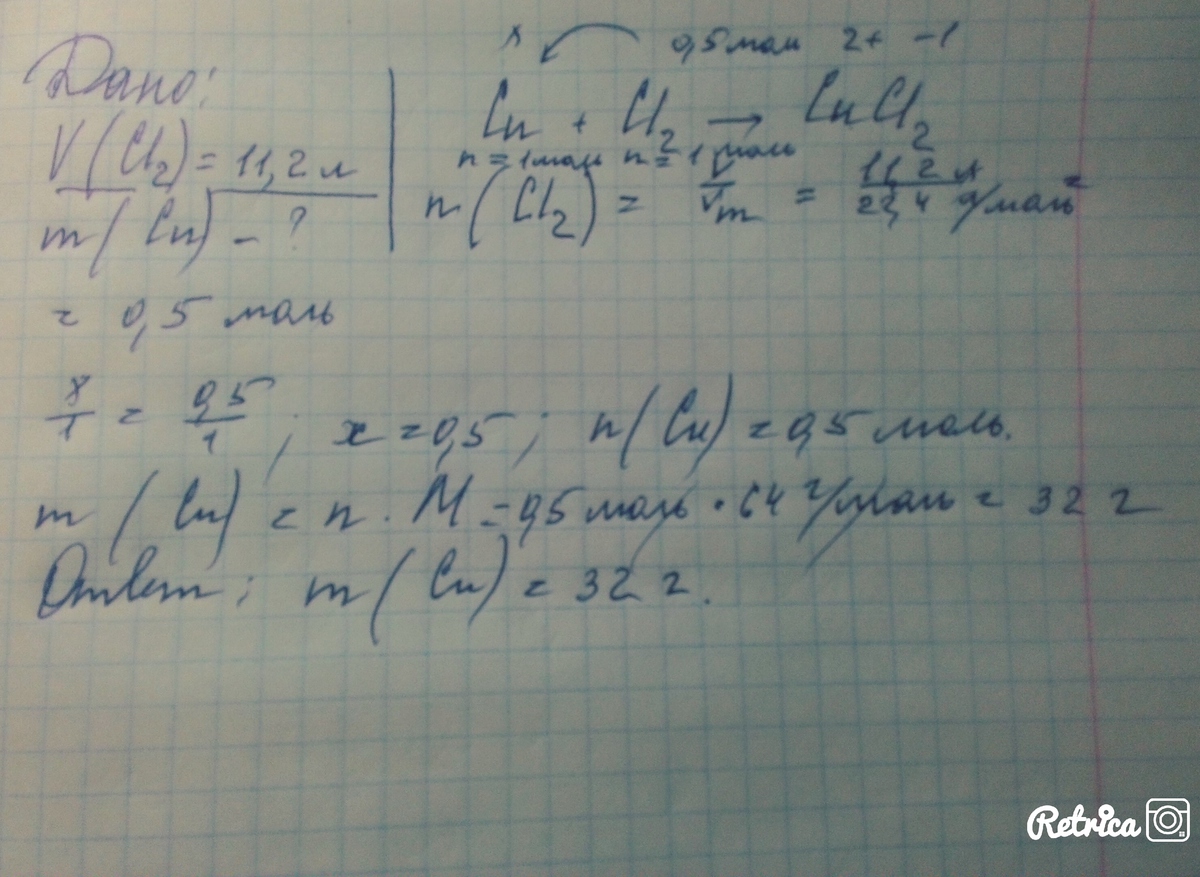 Дано:
V(Cl₂) = 11,2 л
m(Cu) – ?
x 0,5 моль 2+ –1
Cu + Cl₂ → CuCl₂
n = 1 моль n = 1 моль
n(Cl₂) = V/Vm = 11,2 л / 22,4 л/моль =
= 0,5 моль
x/1 = 0,5/1 ; x = 0,5 ; n(Cu) = 0,5 моль.
m(Cu) = n · M = 0,5 моль · 64 г/моль = 32 г
Ответ: m(Cu) = 32 г.
Retrica